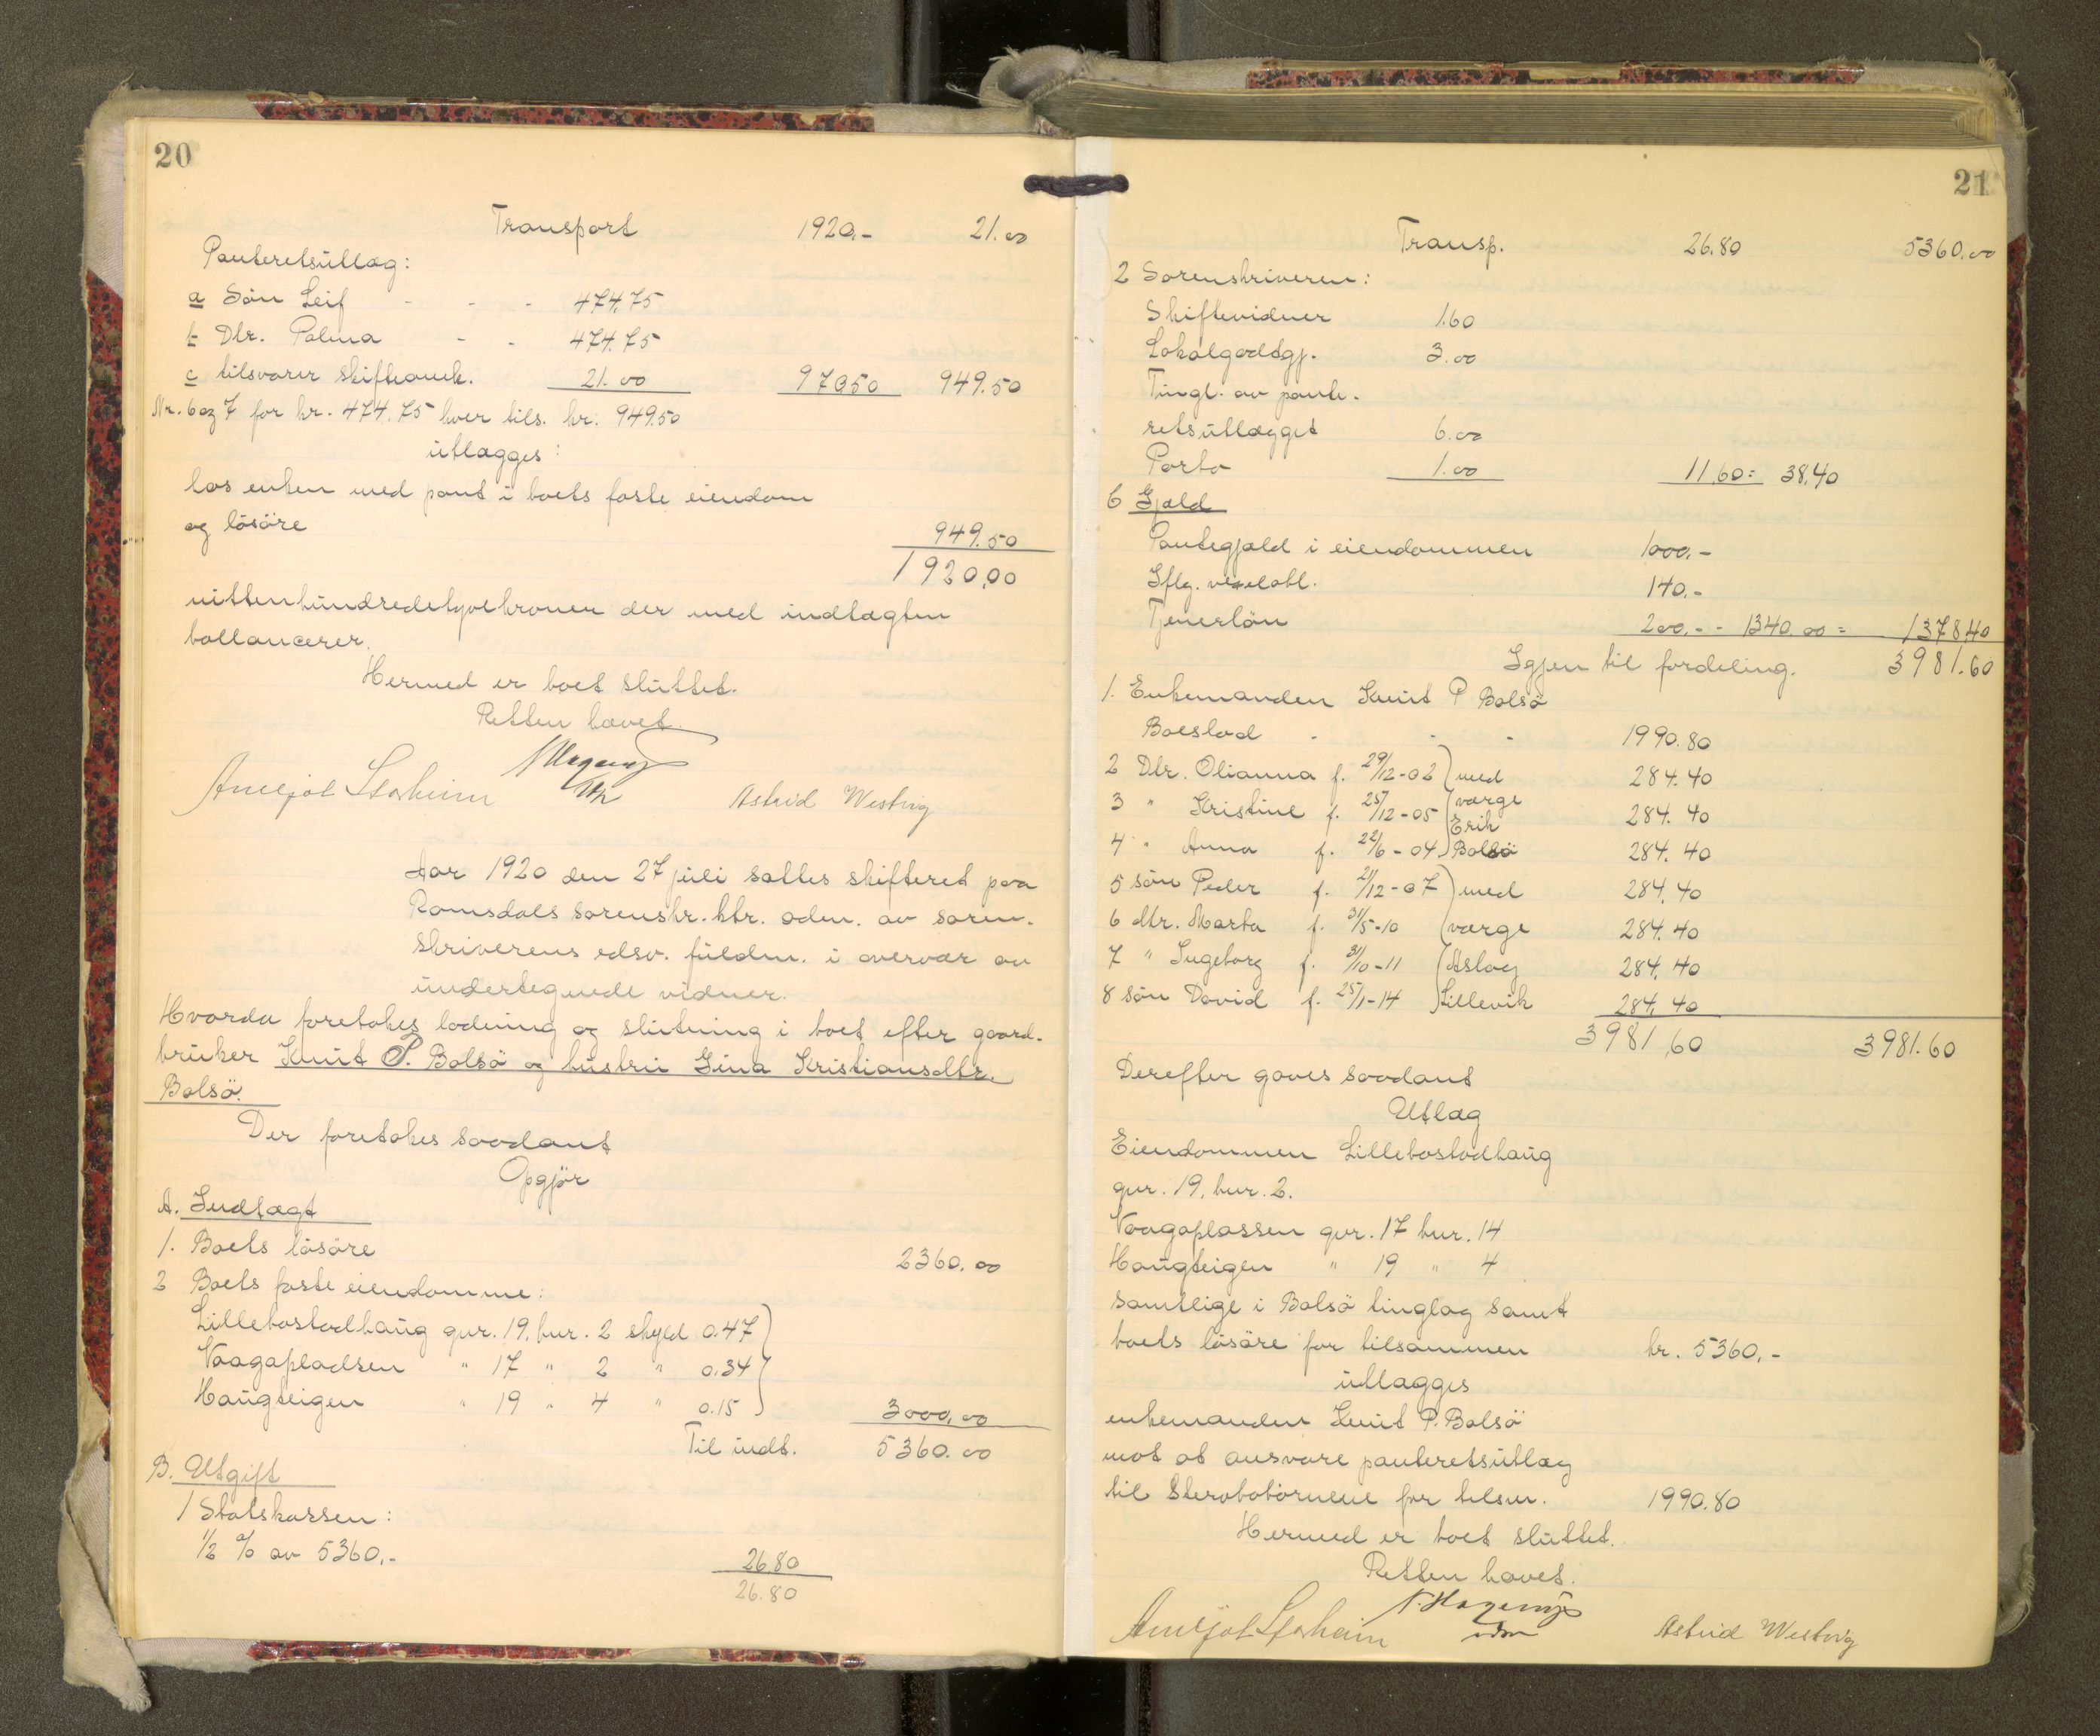 20
Transport 1920.- 21.00
Panteretsutlæg:
a Søn Leif - - - 474.75
b Dtr. Palma - - 474.75
c tilsvarer skifteomk. 21.00 970.50 949.50
Nr. 6 og 7 for kr. 474.75 hver tils. kr. 949.50
utlægges:
hos enken med pant i boets faste eiendom
og løsøre 949.50
1920.00
nittenhundredetyvekroner der med indtægten
ballancerer.
Hermed er boet sluttet.
Retten hævet.
Astrid Westvig
Aar 1920 den 27 juli sattes skifteret paa
Romsdals sorenskr.ktr. adm. av soren-
skriverens edsv. fuldm. i overvær av
undertegnede vidner.
Hvorda foretokes lodning og slutning i boet efter gaard-
bruker Knut P. Bolsø og hustru Gina Kristiansdtr.
Bolsø.
Der foretokes saadant
Opgjør
A. Indtægt
1. Boets løsøre 2360.00
2 Boets faste eiendomme:
Lillebostadhaug gnr. 19. bnr. 2 skyld 0.47
Vaagapladsen " 17 " 2 " 0.34
Haugteigen " 19 " 4 " 0.15 3000.00
Til indt. 5360.00
B. Utgift
1 Statskassen:
1/2 % av 5360.- 26.80
26.80
21
Transp. 26.80 5360.00
2 Sorenskriveren:
Skiftevidner 1.60
Lokalgodtgj. 3.00
Tingl. av pante-
retsutlægget 6.00
Porto 1.00 11.60= 38.40
b Gjæld
Pantegjæld i eiendommen 1000.-
Iflg. vexelobl. 140.-
Tjenerløn 200.- - 1340.00 = 1378.40
Igjen til fordeling. 3981.60
1. Enkemanden Knut P Bolsø
Boeslod - - - 1990.80
2 Dtr. Olianna f. 29/12-02 med 284.40
3 " Kristine f. 25/12-05 værge Erik 284.40
4 " Anna f. 22/6-04 Bolsø 284.40
5 søn Peder f. 21/12-07 med 284.40
6 dtr. Marta f. 31/5-10 værge 284.40
7 " Ingeborg f. 31/10-11 Aslag 284.40
8 søn David f. 25/1-14 Lillevik 284.40
3981.60 3981.60
Derefter gaves saadant
Utlæg
Eiendommen Lillebostadhaug
gnr. 19. bnr. 2.
Vaagaplassen gnr. 17 bnr. 14
Haugteigen " 19 " 4
samtlige i Bolsø tinglag samt
boets løsøre for tilsammen kr. 5360.-
utlægges
enkemanden Knut P. Bolsø
mot at ansvare panteretsutlæg
til Skrababørnene for tilsm. 1990.80
Hermed er boet sluttet.
Retten hævet.
Astrid Westvig